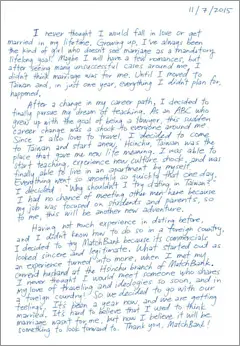 11/7/2015
I never thought I would fall in love or get
married in my lifetime. Growing up, I've always been
the kind of girl who doesn't see marriage as a mandatory
lifelong goal. Maybe I will have a few romances, but
after seeing many unsuccessful cases around me, I
didn't think marriage was for me. Until I moved to
Taiwan and, in just one year, everything I didn't plan for,
happened.
After a change in my career path, I decided to
finally pursue my dream of teaching. As an ABC who
grew up with the goal of being a lawyer, this sudden
career change was a shock to everyone around me.
Since I also love to travel, I decided to come
to Taiwan and start anew. Hsinchu, Taiwan was the
place that gave me new life meaning. I was able to
start teaching, experience new culture shock, and was
finally able to live in an apartment by myself.
Everything went so smooth so quickly that one day,
I decided, "Why shouldn't I try dating in Taiwan?"
I had no chance of meeting other men here because
my job was focused on students and parents, so
to me, this will be another new adventure.
Having not much experience in dating before,
and I didn't know how to do so in a foreign country,
I decided to try MatchBank because its commercials
looked sincere and legitimate. What started out as
an experience turned into more, when I met my
current husband at the Hsinchu branch of MatchBank.
I never thought I would meet someone who shares
my love of traveling and ideologies so soon, and in
a foreign country! So we decided to go with our
feelings. It's been a year now, and we are getting
married. It's hard to believe that I used to think
marriage wasn't for me, but now I believe it will be
something to look forward to. Thank you, MatchBank!